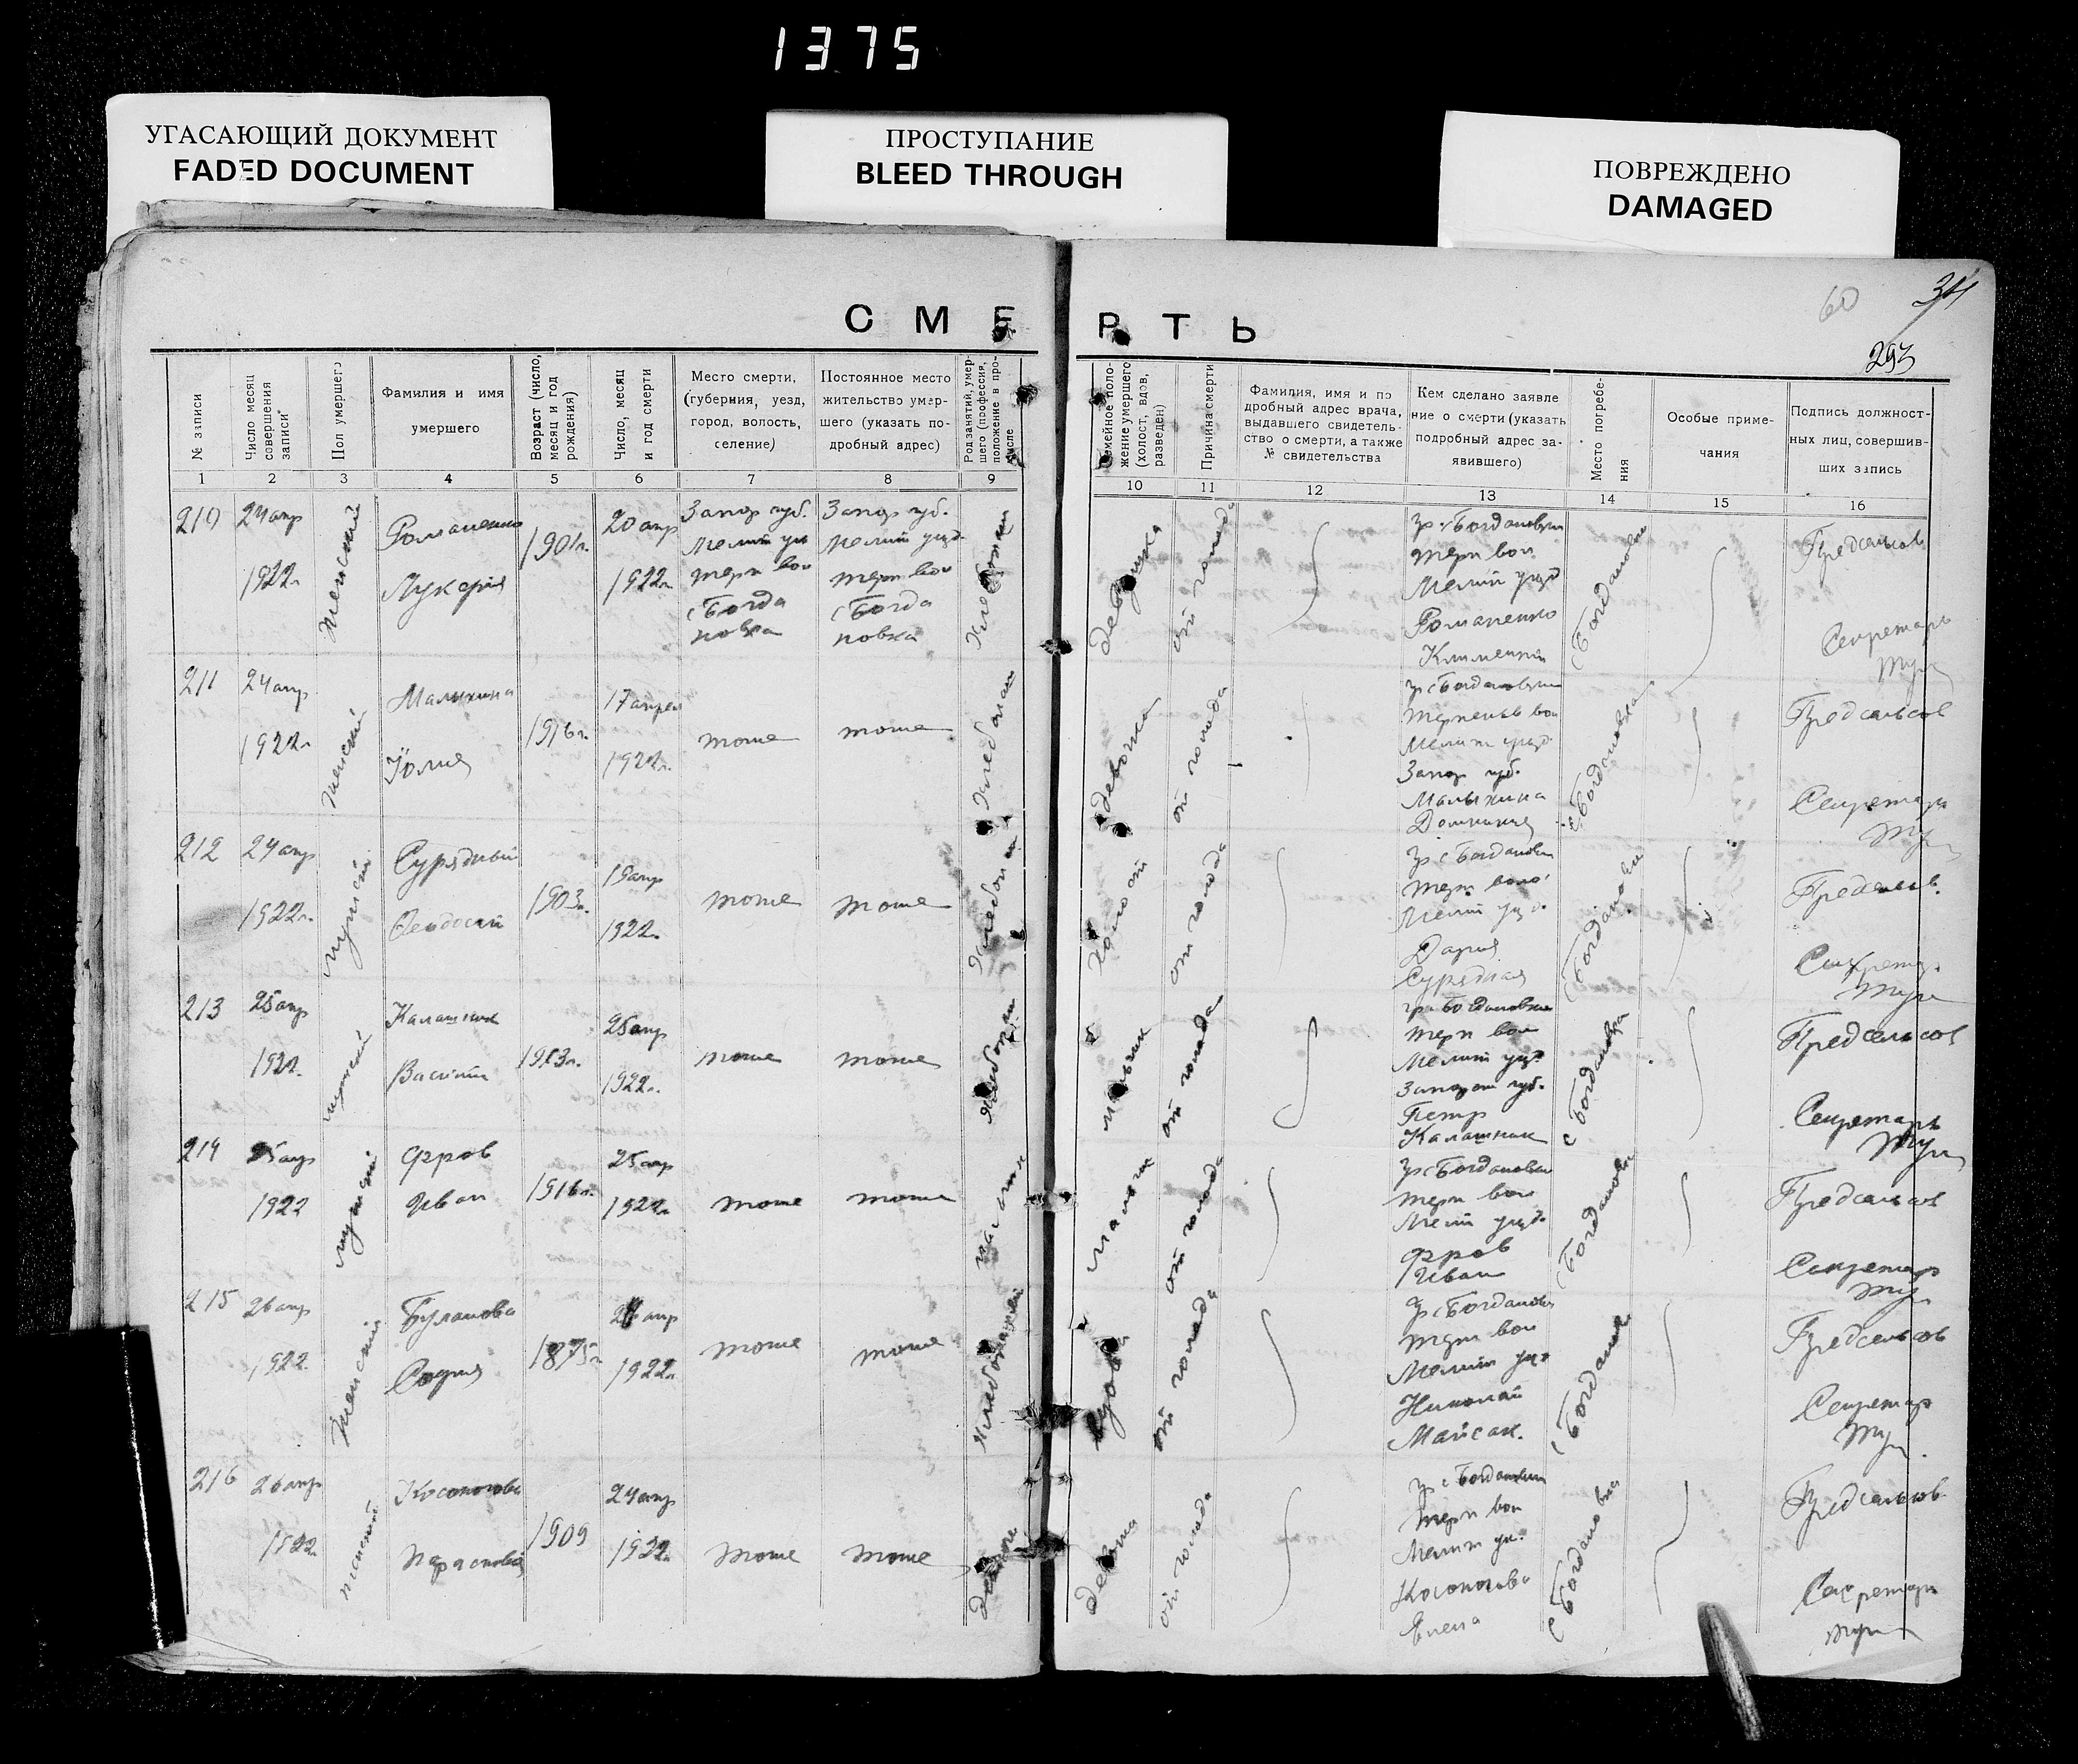 1375
УГАСАЮЩИЙ ДОКУМЕНТ
FADED DOCUMENT
ПРОСТУПАНИЕ
BLEED THROUGH
ПОВРЕЖДЕНО
DAMAGED
60
34
293
СМЕРТЬ
№ записи
Число месяц совершения записи
Пол умершего
Фамилия и имя умершего
Возраст (число, месяц и год рождения)
Число, месяц и год смерти
Место смерти, (губерния, уезд, город, волость, селение)
Постоянное место жительство умершего (указать подробный адрес)
Род занятий, умершего (профессия, положение в промысле
Семейное положение умершего (холост, вдов, разведен)
Причина смерти
Фамилия, имя и подробный адрес врача, выдавшего свидетельство о смерти, а также № свидетельства
Кем сделано заявление о смерти (указать подробный адрес заявившего)
Место погребения
Особые примечания
Подпись должностных лиц, совершивших запись
1 2 3 4 5 6 7 8 9 10 11 12 13 14 15 16
210
24 апр
1922г
женский
Романенко
Лукерия
1901г.
20 апр
1922г.
Запор губ.
Мелит уез
терп вол
с Богда
новка
Запор губ.
Мелит уезд
терп вол
с Богда
новка
Хлебопаш
девушка
от голода
гр с Богдановки
терп вол.
Мелит уезд
Романенко
Климентий
с Богдановка
Предсельсов
Секретарь
211
24 апр
1922г
женский
Малыхина
Юлия
1916г.
17 апрел
1922г.
тоже
тоже
Хлебопаш
девочка
от голода
гр с Богдановки
терпеньев вол
Мелит уезд
Запор губ.
Малыхина
с Богдановка
Предсельсов
Секретарь
212
24 апр
1922г.
мужской
Сурядный
Феодосий
1903г.
19 апр
1922г.
тоже
тоже
Хлебопаш
Холост
от голода
гр с Богдановки
терп воло
Мелит уезд
Дария
Сурядная
с Богдановка
Предсельсов
Секретарь
213
25 апр
1922.
мужской
Калашник
Василий
1913г.
25 апр
1922г.
тоже
тоже
Хлебопаш
мальчик
от голода
гр с Богдановка
терп вол
Мелит уезд
Запор губ.
Петр
Калашник
с Богдановка
Предсельсов
Секретарь
214
25 апр
1922
мужской
Иван
1916г.
25 апр
1922г
тоже
тоже
мальчик
от голода
гр с Богдановки
терп вол
Мелит уезд
Иван
с Богдановка
Предсельсов
Секретарь
215
26 апр
1922
женский
Буланова
София
1875г
апр
1922г
тоже
тоже
вдова
от голода
гр с Богдановки
терп вол
Мелит уезд
Николай
Майсак.
с Богдановка
Предсельсов
Секретарь
216
26 апр
1922г
женский
Косоногова
1909
24 апр
1922г
тоже
тоже
от голода
гр с Богдановки
терп вол
Мелит уез.
Косоногова
Елена
с Богдановка
Предсельсов
Секретарь